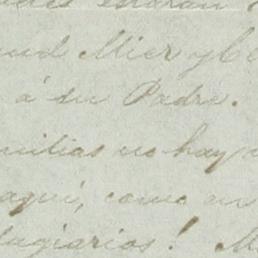 estarán
Mier y
á su Padre.
familias no hay
aquí, como en
plagiarios! M